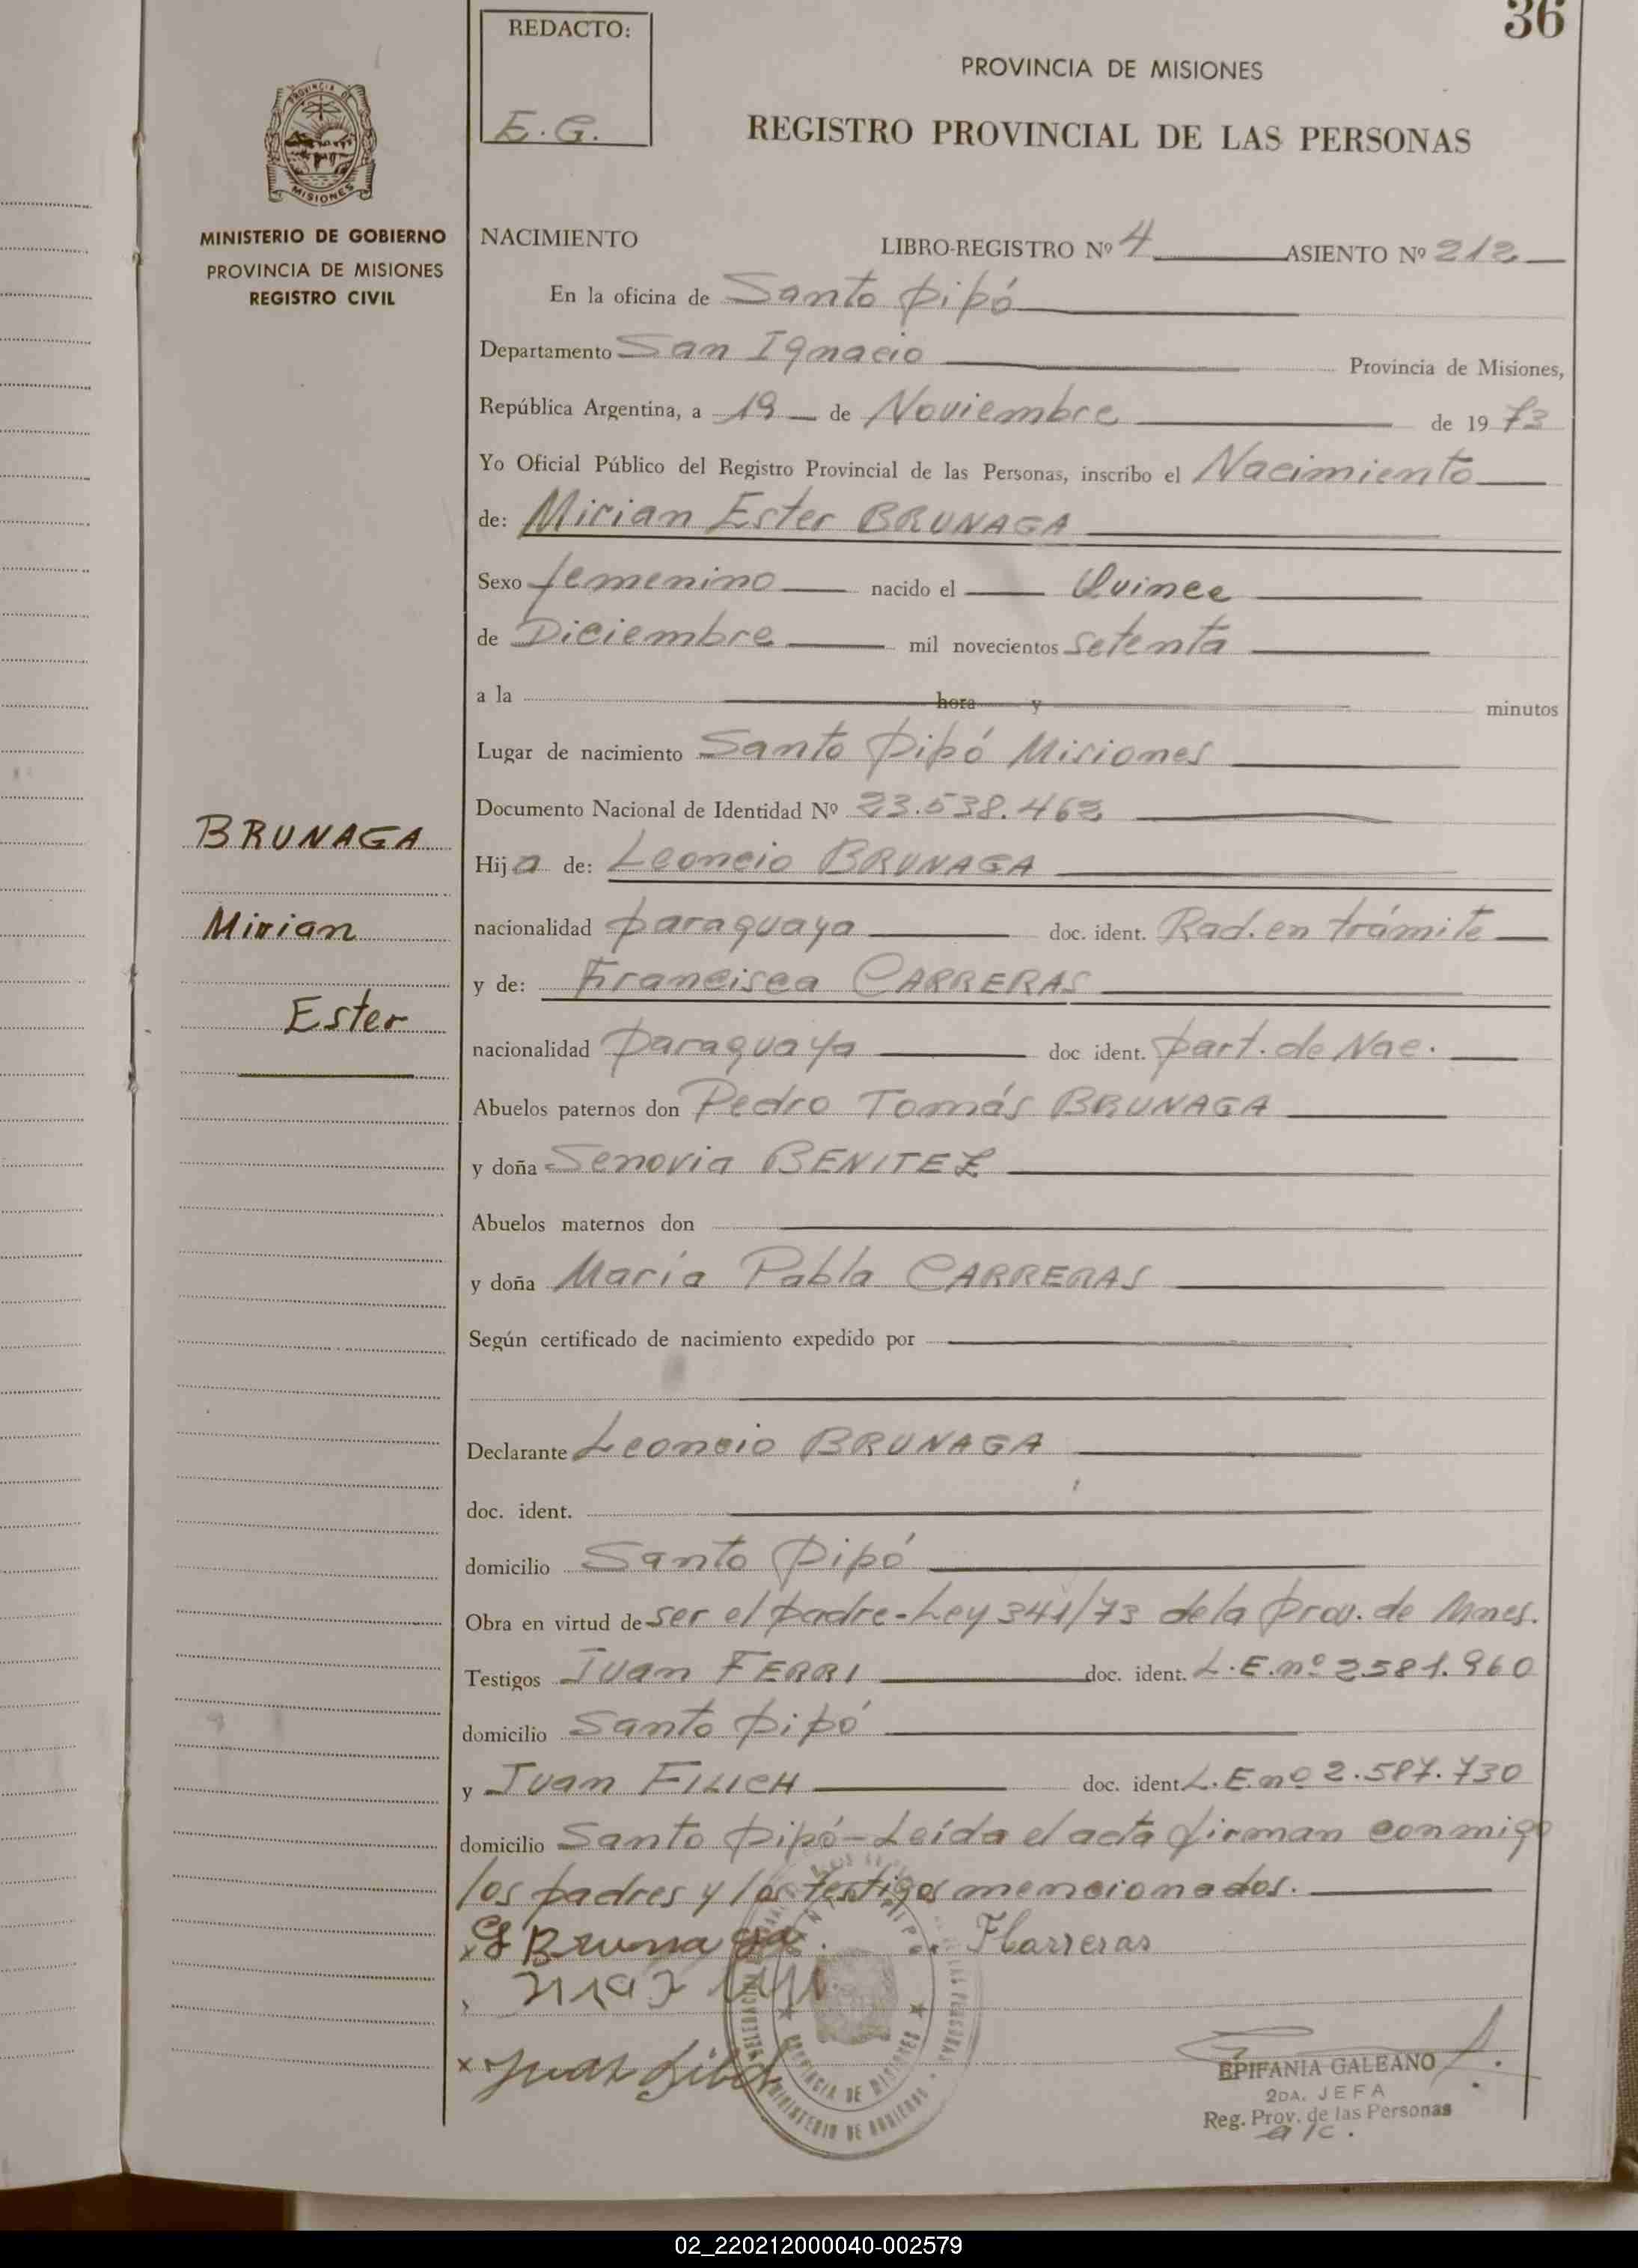 36
REDACTO:
E.G.
PROVINCIA DE MISIONES
REGISTRO PROVINCIAL DE LAS PERSONAS
PROVINCIA DE
MISIONES
MINISTERIO DE GOBIERNO
PROVINCIA DE MISIONES
REGISTRO CIVIL
NACIMIENTO LIBRO-REGISTRO Nº 4 ASIENTO Nº 212
En la oficina de Santo Pipó
Departamento San Ignacio Provincia de Misiones,
República Argentina, a 19 de Noviembre de 1973
Yo Oficial Público del Registro Provincial de las Personas, inscribo el Nacimiento
de: Mirian Ester BRUNAGA
Sexo femenino nacido el Quince
de Diciembre mil novecientos setenta
a la hora y minutos
Lugar de nacimiento Santo Pipó Misiones
Documento Nacional de Identidad Nº 23.538.462
BRUNAGA
Mirian
Ester
Hija de: Leoncio BRUNAGA
nacionalidad paraguaya doc. ident. Rad. en trámite
y de: Francisca CARRERAS
nacionalidad paraguaya doc ident. part. de Nac.
Abuelos paternos don Pedro Tomás BRUNAGA
y doña Senovia BENITEZ
Abuelos maternos don
y doña María Pabla CARRERAS
Según certificado de nacimiento expedido por
Declarante Leoncio BRUNAGA
doc. ident.
domicilio Santo Pipó
Obra en virtud de ser el padre-Ley 341/73 de la prov. de Mnes.
Testigos Juan FERRI doc. ident. L.E.nº 2581.960
domicilio Santo Pipó
y Juan FILICH doc. ident. L.E.nº 2.587.730
domicilio Santo Pipó-Leída el acta firman conmigo
los padres y los testigos mencionados.
x L Brunaga. FCarreras
x Juan Filich
EPIFANIA GALEANO
2DA. JEFA
Reg. Prov. de las Personas
a/c.
PROVINCIA DE MISIONES
MINISTERIO DE GOBIERNO
02_220212000040-002579